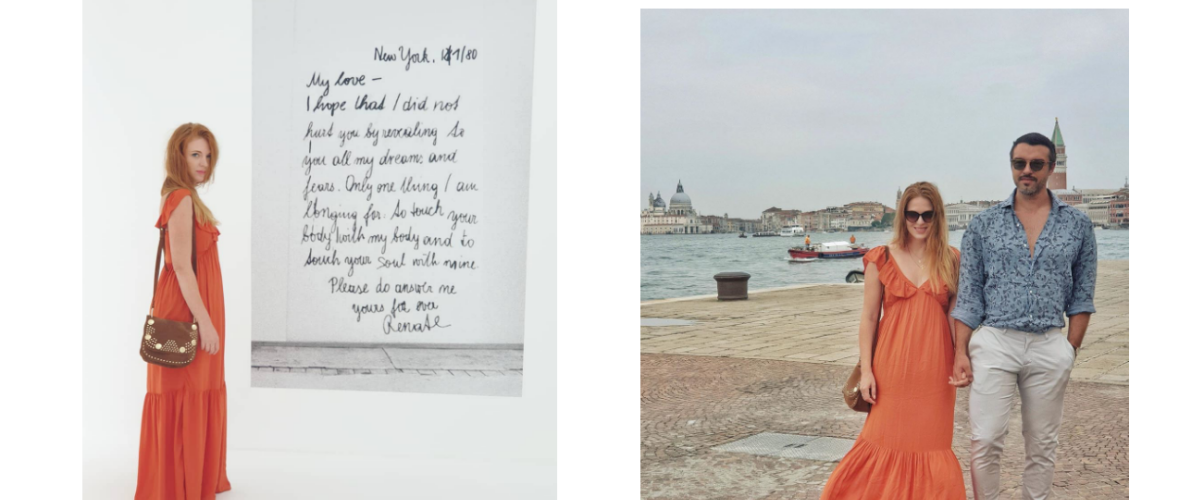 New York, 1/80
My love –
I hope that I did not
hurt you by revealing to
you all my dreams and
fears. Only one thing I am
longing for. To touch your
body with my body and to
touch your soul with mine
Please do answer me
yours for ever
Renate